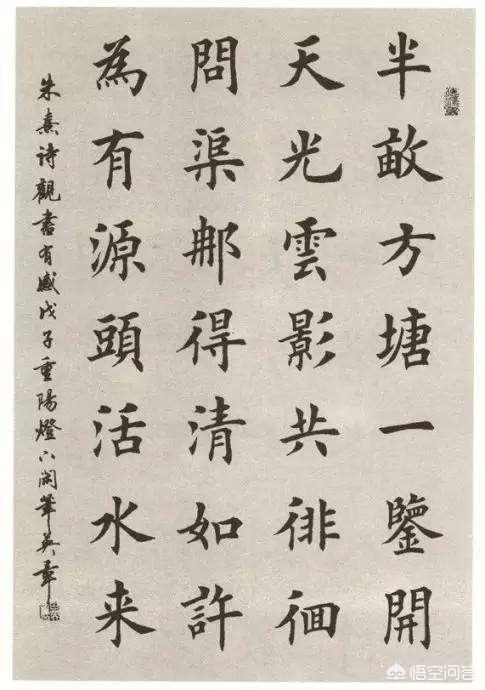 半畝方塘一鑒開
天光雲影共徘徊
問渠那得清如許
為有源頭活水来
朱熹诗觀書有感戊子重陽燈下閑筆英章
悟空问答